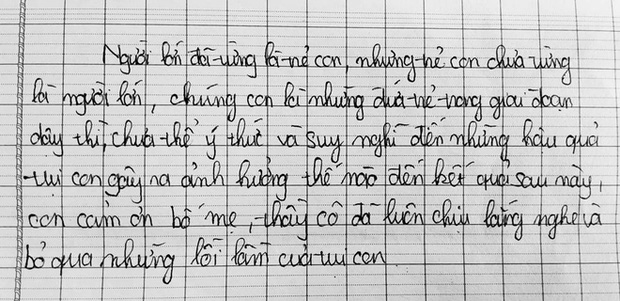 Người lớn đã từng là trẻ con, nhưng trẻ con chưa từng
là người lớn, chúng con là những đứa trẻ trong giai đoạn
dậy thì, chưa thể ý thức và suy nghĩ đến những hậu quả
tụi con gây ra ảnh hưởng thế nào đến kết quả sau này,
con cảm ơn bố mẹ, thầy cô đã luôn chịu lắng nghe và
bỏ qua những lỗi lầm của tụi con